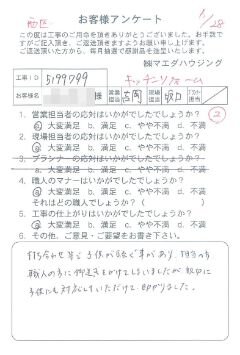 西区
1/28
お客様アンケート
この度は工事のご用命を頂きありがとうございました。お手数で
すがご記入頂き、ご返送頂きますようお願い申し上げます。
ご返送頂いた方から、毎月抽選で感謝品を差し上げます。
㈱マエダハウジング
工事ID 5199799 キッチンリフォーム
お客様名 営業担当 現場担当 坂口 プランナー担当
1. 営業担当者の応対はいかがでしたでしょうか?
a. 大変満足 b. 満足 c. やや不満 d. 不満
2. 現場担当者の応対はいかがでしたでしょうか?
a. 大変満足 b. 満足 c. やや不満 d. 不満
3. プランナーの応対はいかがでしたでしょうか?
a. 大変満足 b. 満足 c. やや不満 d. 不満
4. 職人のマナーはいかがでしたでしょうか?
a. 大変満足 b. 満足 c. やや不満 d. 不満
それはどの職人でしょうか? ( )
5. 工事の仕上がりはいかがでしたでしょうか?
a. 大変満足 b. 満足 c. やや不満 d. 不満
6. その他、ご意見・ご要望をお書き下さい。
打ち合わせ等 子供が
職人の方に御迷惑をかけてしまいましたが 親切に
子供にも対応していただけて 助かりました。